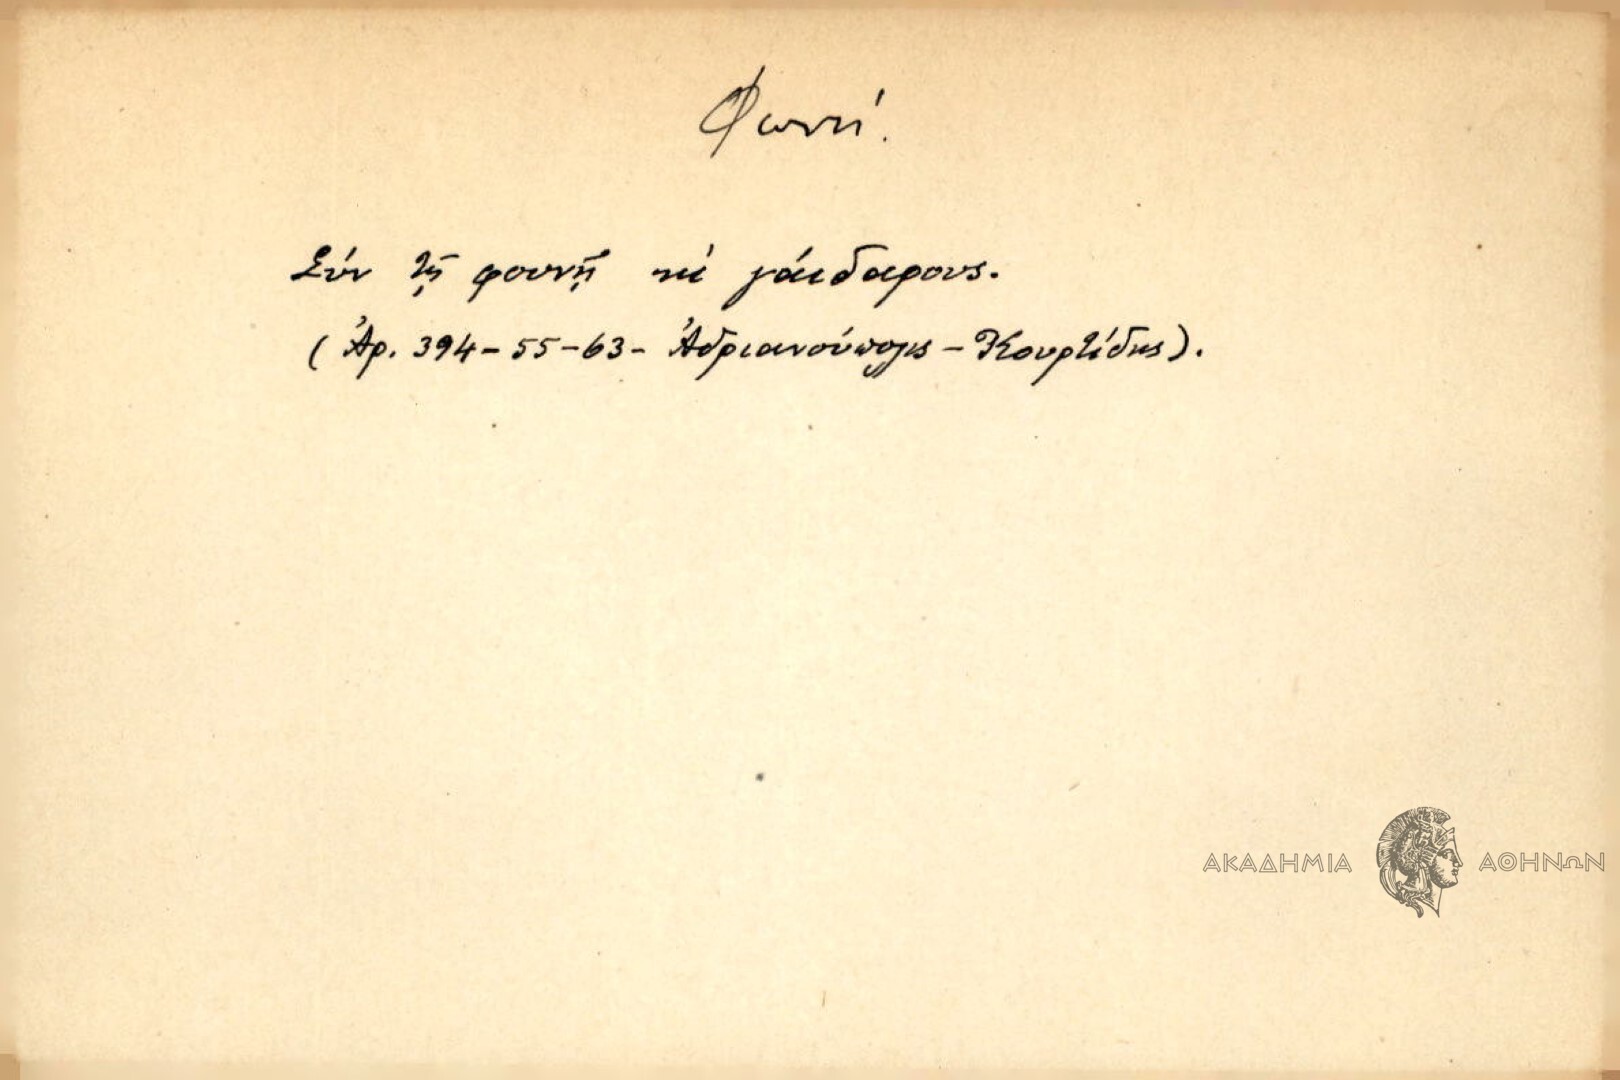 Φωνή.
Σύν τῇ φουνῇ κί γάιδαρους.
(Ἀρ. 394-55-63- Ἀδριανούπολις - Κουρτίδης).
ΑΚΑΔΗΜΙΑ ΑΘΗΝΩΝ